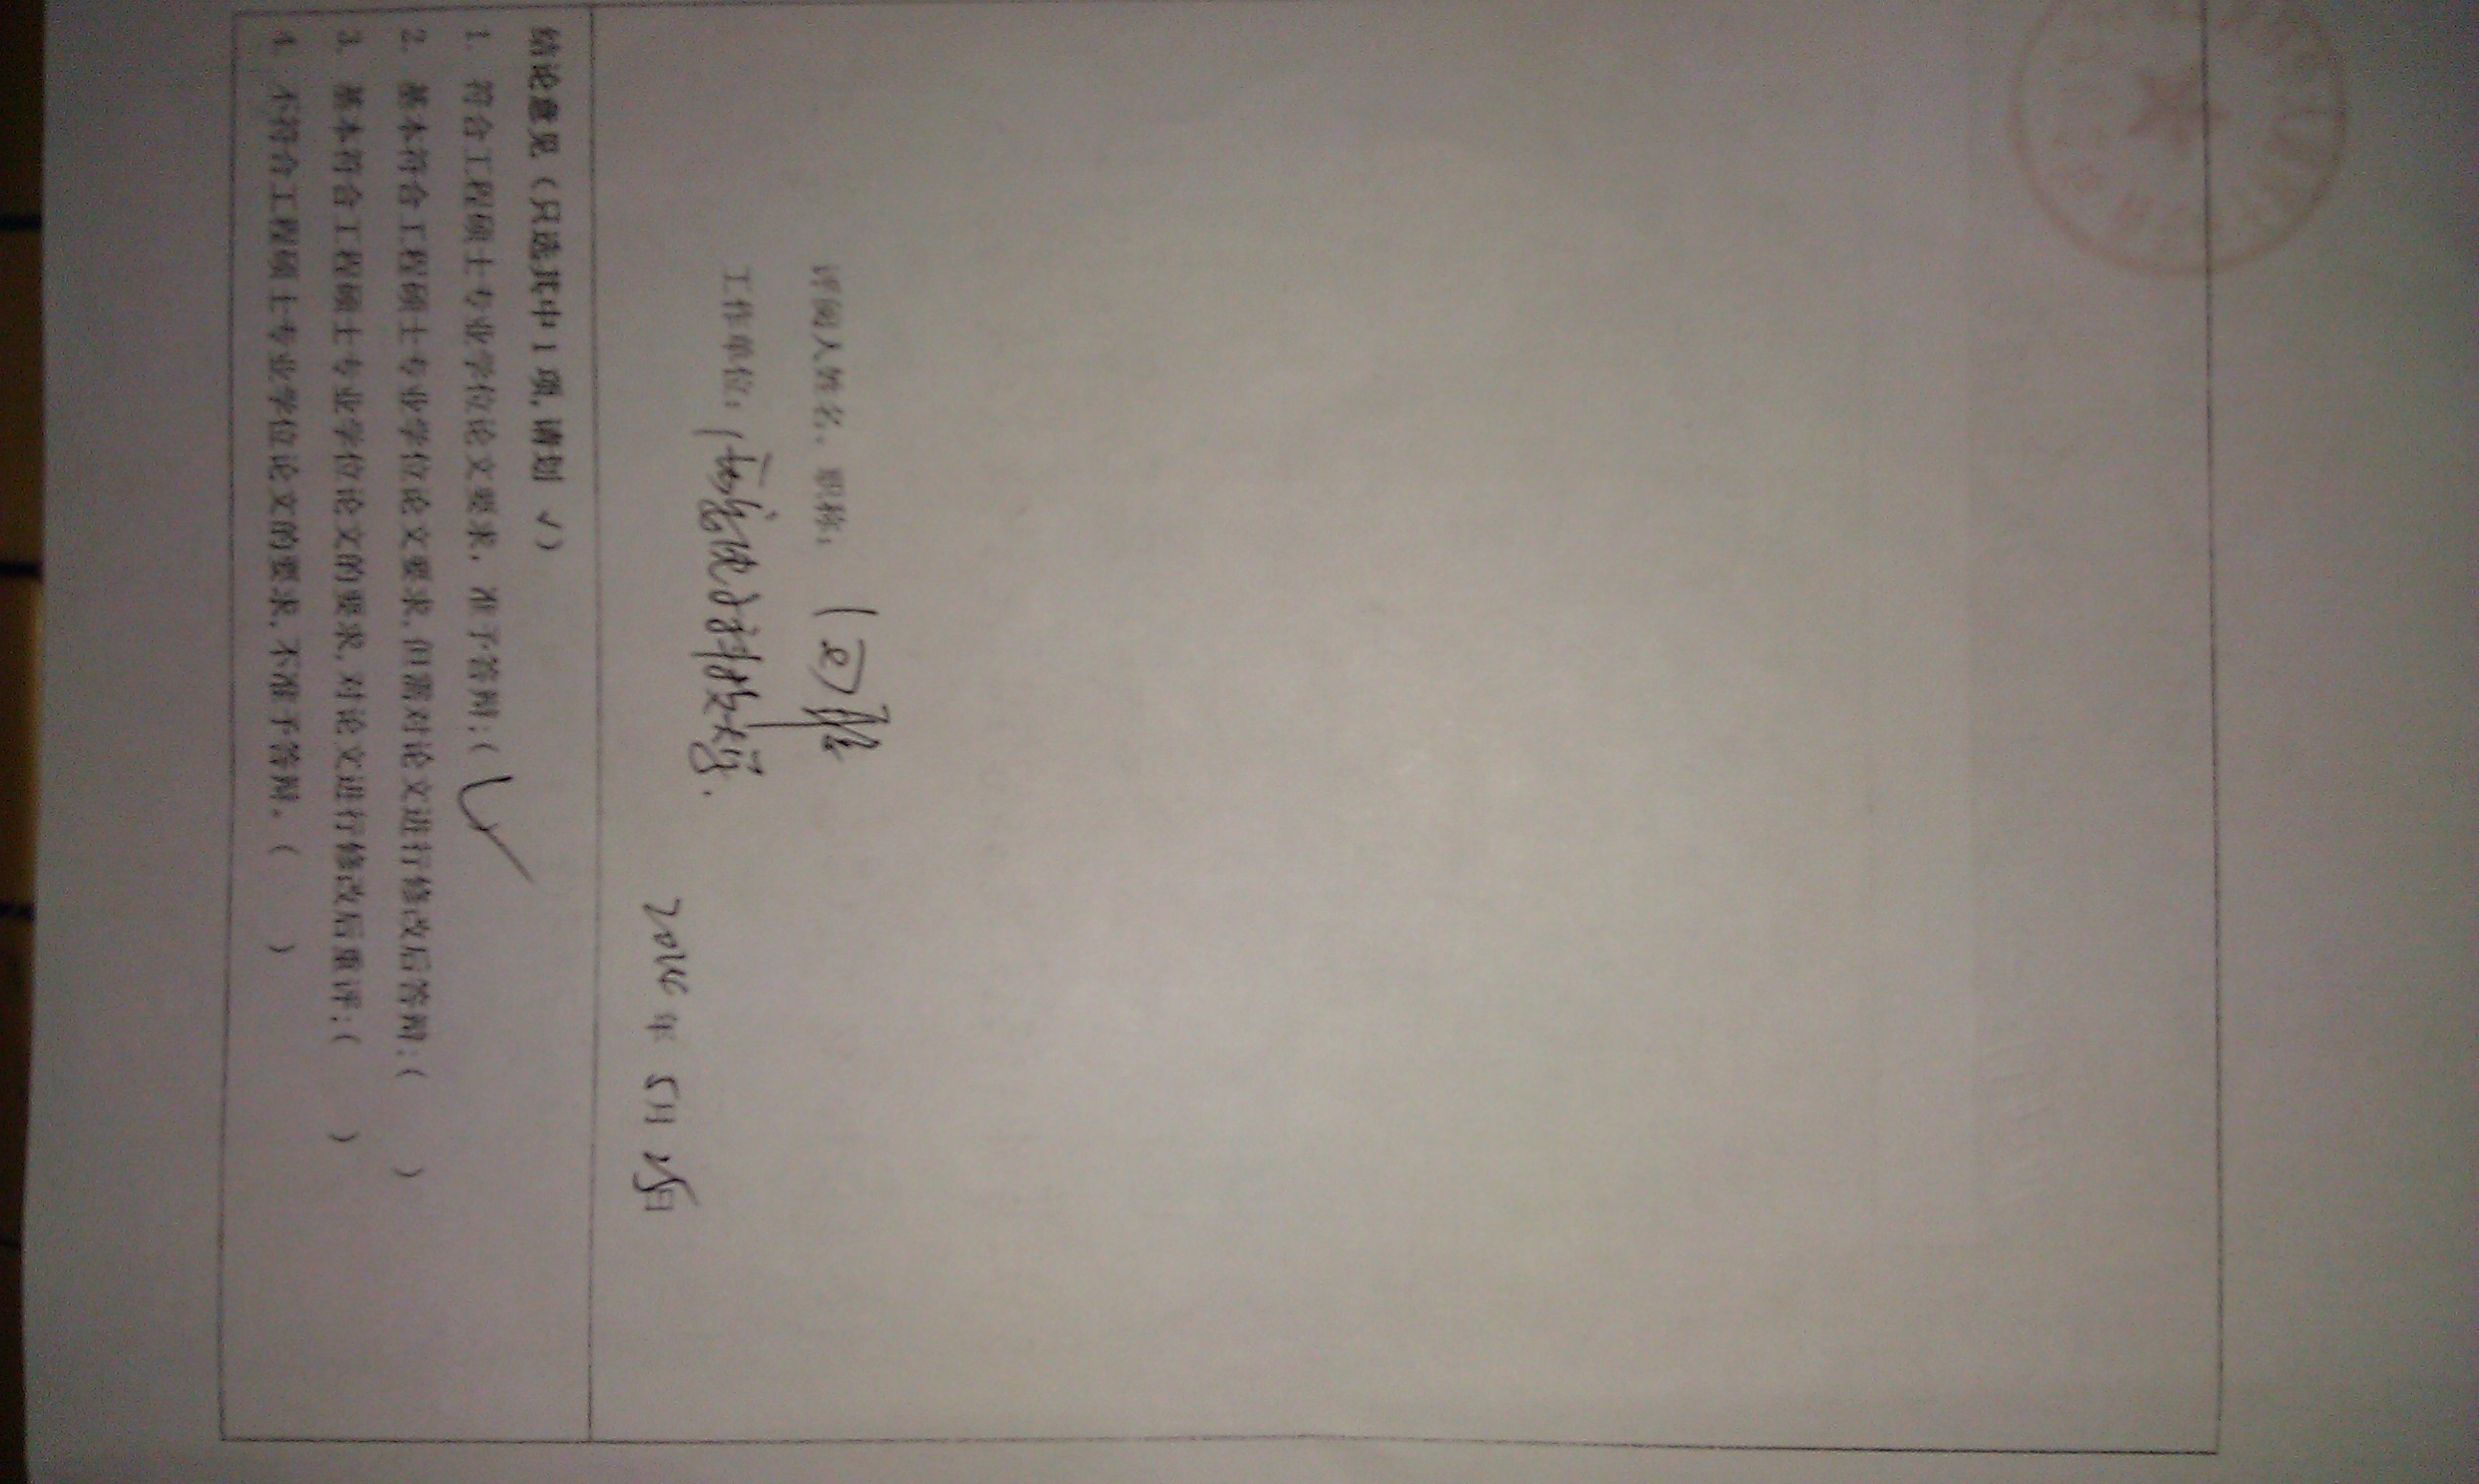 评阅人姓名、职称:
工作单位: 科技大学.
年 5月 日
结论意见(只选其中1项,请划 √)
1. 符合工程硕士专业学位论文要求, 准予答辩;( √
2. 基本符合工程硕士专业学位论文要求,但需对论文进行修改后答辩;( )
3. 基本符合工程硕士专业学位论文的要求,对论文进行修改后重评;( )
4. 不符合工程硕士专业学位论文的要求,不准予答辩。( )